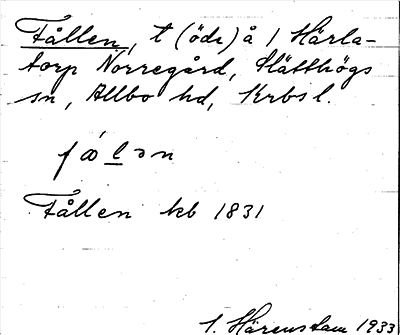 Fållen, t (öde) å 1 Härla-
torp Norregård, Slätthögs
sn, Allbo hd, Krbs l.
fó̤lən
Fållen kb 1831
1. Härenstam 1933